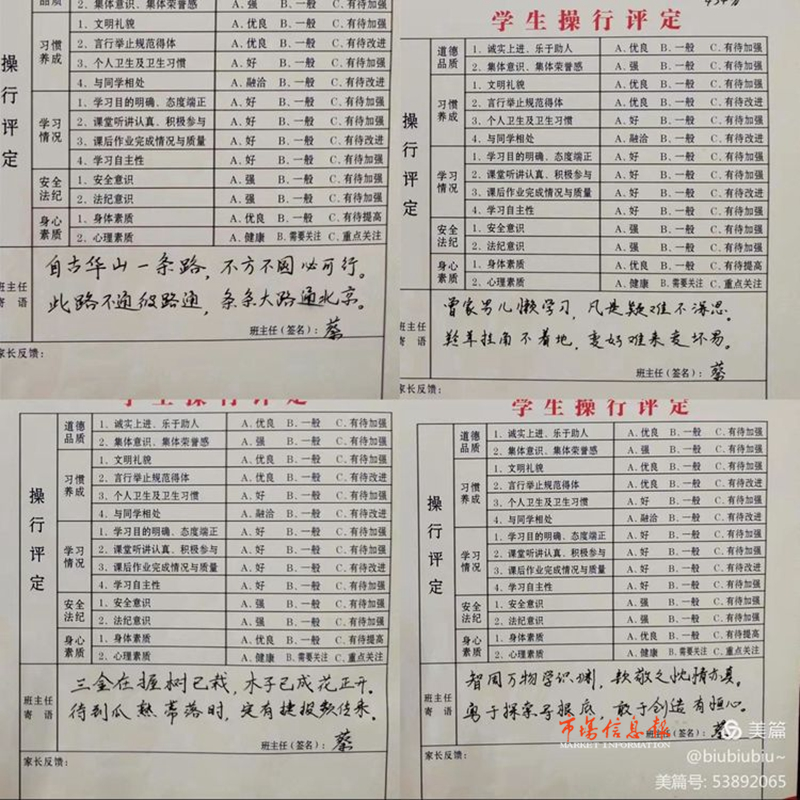 品质 2. 集体意识、集体荣誉感 A. 强 B. 一般 C. 有待加强
1. 文明礼貌 A. 优良 B. 一般 C. 有待加强
习惯养成 2. 言行举止规范得体 A. 优良 B. 一般 C. 有待改进
3. 个人卫生及卫生习惯 A. 好 B. 一般 C. 有待加强
4. 与同学相处 A. 融洽 B. 一般 C. 有待改进
操行评定
1. 学习目的明确、态度端正 A. 好 B. 一般 C. 有待加强
学习情况 2. 课堂听讲认真、积极参与 A. 好 B. 一般 C. 有待加强
3. 课后作业完成情况与质量 A. 好 B. 一般 C. 有待改进
4. 学习自主性 A. 好 B. 一般 C. 有待加强
安全法纪 1. 安全意识 A. 强 B. 一般 C. 有待加强
2. 法纪意识 A. 强 B. 一般 C. 有待加强
身心素质 1. 身体素质 A. 优良 B. 一般 C. 有待提高
2. 心理素质 A. 健康 B. 需要关注 C. 重点关注
班主任寄语
自古华山一条路，不方不圆必可行。
此路不通彼路通，条条大路通北京。
班主任(签名)：蔡
家长反馈：
学生操行评定
道德品质 1. 诚实上进、乐于助人 A. 优良 B. 一般 C. 有待加强
2. 集体意识、集体荣誉感 A. 强 B. 一般 C. 有待加强
1. 文明礼貌 A. 优良 B. 一般 C. 有待加强
习惯养成 2. 言行举止规范得体 A. 优良 B. 一般 C. 有待改进
3. 个人卫生及卫生习惯 A. 好 B. 一般 C. 有待加强
4. 与同学相处 A. 融洽 B. 一般 C. 有待改进
操行评定
1. 学习目的明确、态度端正 A. 好 B. 一般 C. 有待加强
学习情况 2. 课堂听讲认真、积极参与 A. 好 B. 一般 C. 有待加强
3. 课后作业完成情况与质量 A. 好 B. 一般 C. 有待改进
4. 学习自主性 A. 好 B. 一般 C. 有待加强
安全法纪 1. 安全意识 A. 强 B. 一般 C. 有待加强
2. 法纪意识 A. 强 B. 一般 C. 有待加强
身心素质 1. 身体素质 A. 优良 B. 一般 C. 有待提高
2. 心理素质 A. 健康 B. 需要关注 C. 重点关注
班主任寄语
曾家男儿懒学习，凡是疑难不深思。
羚羊挂角不着地，变好难来变坏易。
班主任(签名)：蔡
家长反馈：
学生操行评定
道德品质 1. 诚实上进、乐于助人 A. 优良 B. 一般 C. 有待加强
2. 集体意识、集体荣誉感 A. 强 B. 一般 C. 有待加强
1. 文明礼貌 A. 优良 B. 一般 C. 有待加强
习惯养成 2. 言行举止规范得体 A. 优良 B. 一般 C. 有待改进
3. 个人卫生及卫生习惯 A. 好 B. 一般 C. 有待加强
4. 与同学相处 A. 融洽 B. 一般 C. 有待改进
操行评定
1. 学习目的明确、态度端正 A. 好 B. 一般 C. 有待加强
学习情况 2. 课堂听讲认真、积极参与 A. 好 B. 一般 C. 有待加强
3. 课后作业完成情况与质量 A. 好 B. 一般 C. 有待改进
4. 学习自主性 A. 好 B. 一般 C. 有待加强
安全法纪 1. 安全意识 A. 强 B. 一般 C. 有待加强
2. 法纪意识 A. 强 B. 一般 C. 有待加强
身心素质 1. 身体素质 A. 优良 B. 一般 C. 有待提高
2. 心理素质 A. 健康 B. 需要关注 C. 重点关注
班主任寄语
三金在握树已栽，木子已成花正开。
待到瓜熟蒂落时，定有捷报频传来。
班主任(签名)：蔡
家长反馈：
学生操行评定
道德品质 1. 诚实上进、乐于助人 A. 优良 B. 一般 C. 有待加强
2. 集体意识、集体荣誉感 A. 强 B. 一般 C. 有待加强
1. 文明礼貌 A. 优良 B. 一般 C. 有待加强
习惯养成 2. 言行举止规范得体 A. 优良 B. 一般 C. 有待改进
3. 个人卫生及卫生习惯 A. 好 B. 一般 C. 有待加强
4. 与同学相处 A. 融洽 B. 一般 C. 有待改进
操行评定
1. 学习目的明确、态度端正 A. 好 B. 一般 C. 有待加强
学习情况 2. 课堂听讲认真、积极参与 A. 好 B. 一般 C. 有待加强
3. 课后作业完成情况与质量 A. 好 B. 一般 C. 有待改进
4. 学习自主性 A. 好 B. 一般 C. 有待加强
安全法纪 1. 安全意识 A. 强 B. 一般 C. 有待加强
2. 法纪意识 A. 强 B. 一般 C. 有待加强
身心素质 1. 身体素质 A. 优良 B. 一般 C. 有待提高
2. 心理素质 A. 健康 B. 需要关注 C. 重点关注
班主任寄语
智周万物学识渊，钦敬之忱情亦真。
勇于探索寻根底，敢于创造有恒心。
班主任(签名)：蔡
家长反馈：
市场信息报
MARKET INFORMATION
美篇
@biubiubiu~
美篇号: 53892065